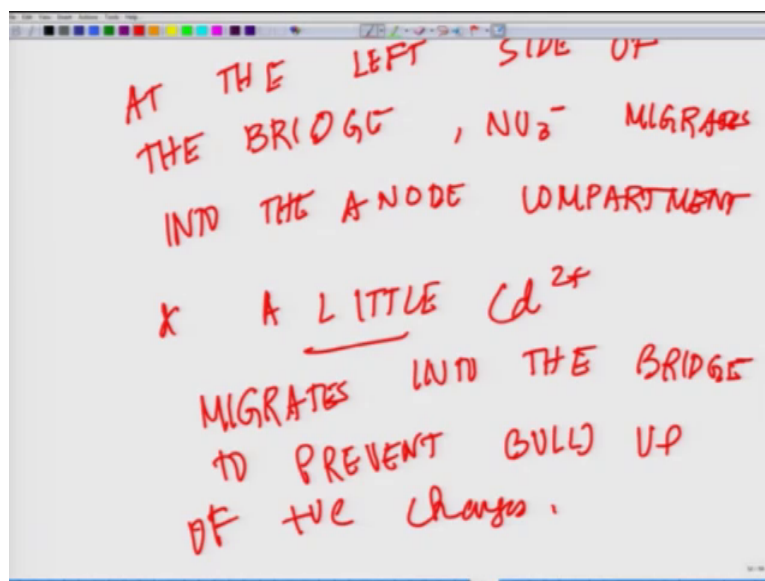 AT THE LEFT SIDE OF
THE BRIDGE, NO3- MIGRATES
INTO THE ANODE COMPARTMENT
& A LITTLE Cd2+
MIGRATES INTO THE BRIDGE
TO PREVENT BUILD UP
OF +ve charges.